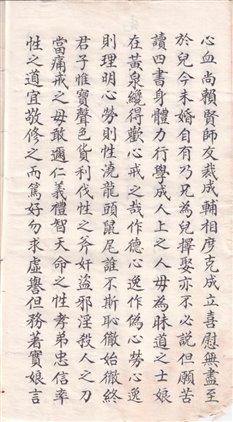 心血尚賴賢師友裁成輔相庶克成立喜慰無盡至
於兒今未婚自有乃兄為兒擇娶亦不必說但願苦
讀四書身體力行學成人上之人毋為昧道之士娘
在黃泉纔得歡心戒之哉作德心逸作偽心勞心逸
則理明心勞則性澆龍頭鼠尾誰不斯恥徹始徹終
君子惟寶聲色貨利伐性之斧奸盜邪淫殺人之刀
當痛戒之毋敢邇仁義禮智天命之性孝弟忠信率
性之道宜敬修之而篤好勿求虛譽但務著實娘言